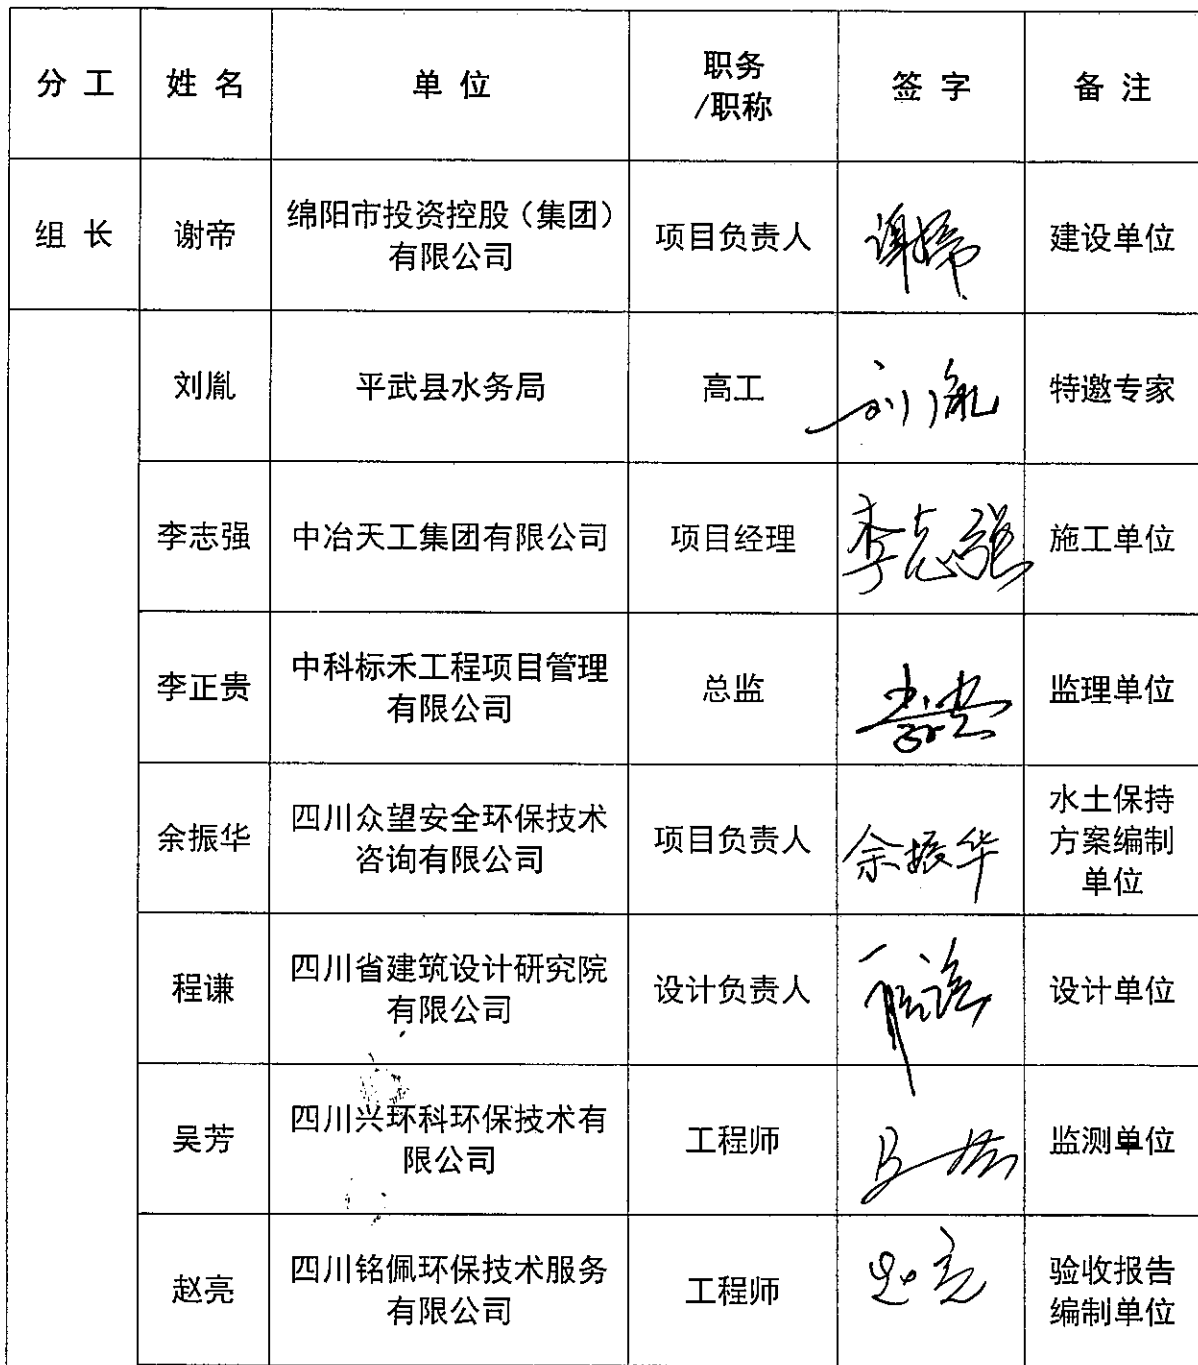 分工 姓名 单位 职务/职称 签字 备注
组长 谢帝 绵阳市投资控股（集团）有限公司 项目负责人 谢帝 建设单位
刘胤 平武县水务局 高工 刘胤 特邀专家
李志强 中冶天工集团有限公司 项目经理 李志强 施工单位
李正贵 中科标禾工程项目管理有限公司 总监 监理单位
余振华 四川众望安全环保技术咨询有限公司 项目负责人 余振华 水土保持方案编制单位
程谦 四川省建筑设计研究院有限公司 设计负责人 程谦 设计单位
吴芳 四川兴环科环保技术有限公司 工程师 吴芳 监测单位
赵亮 四川铭佩环保技术服务有限公司 工程师 赵亮 验收报告编制单位